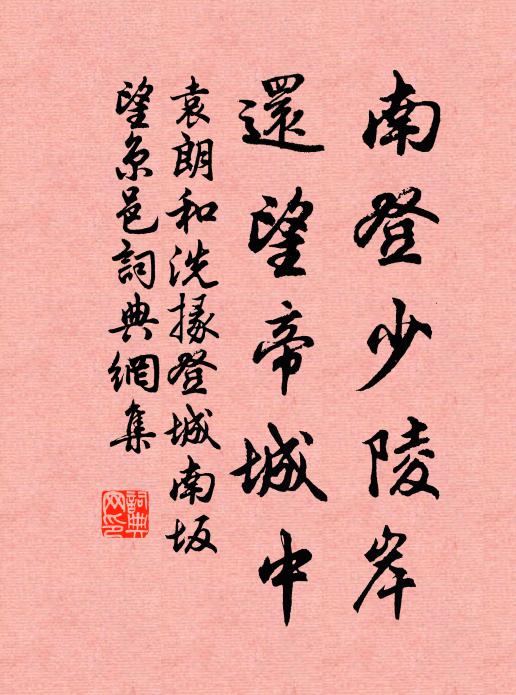 南登少陵岸
還望帝城中
袁朗和洗掾登城南坂
望京邑詞典網集
詞典
网印